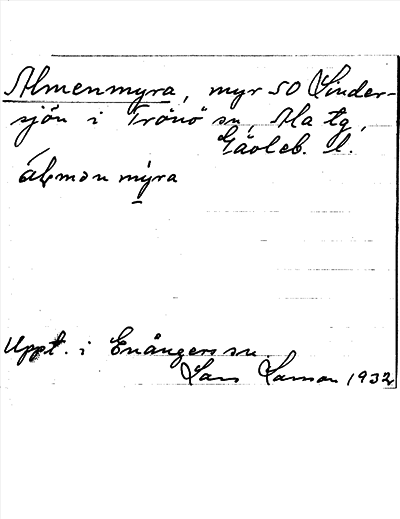 Almenmyra, myr SO Linder-
sjön i Trönö sn, Ala tg,
Gävleb. l.
myra
Uppt. i Enångers sn.
Lars Larsson 1932